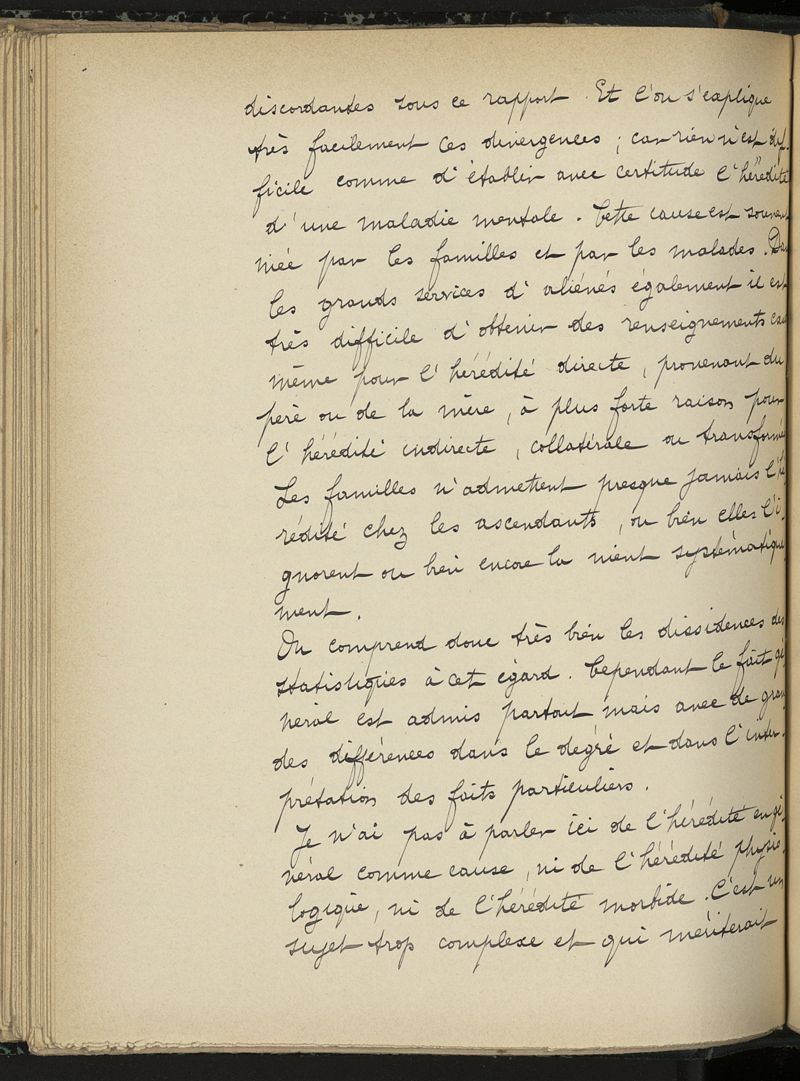 discordantes sous ce rapport. Et l'on s'explique
très facilement ces divergences ; car rien n'est dif-
ficile comme d'établir avec certitude l'hérédité
d'une maladie mentale. Cette cause est souvent
niée par les familles et par les malades. Dans
les grands services d'aliénés également il est
très difficile d'obtenir des renseignements
même pour l'hérédité directe, provenant du
père ou de la mère, à plus forte raison pour
l'hérédité indirecte, collatérale ou transformée
Les familles n'admettent presque jamais l'hé
rédité chez les ascendants, ou bien elles l'i
gnorent ou bien encore la nient systématique
ment.
On comprend donc très bien les dissidences des
statistiques à cet égard. Cependant le fait gé
néral est admis partout mais avec de gran
des différences dans le degré et dans l'inter-
prétation des faits particuliers.
Je n'ai pas à parler ici de l'hérédité en gé
néral comme cause, ni de l'hérédité physio
logique, ni de l'hérédité morbide. C'est un
sujet trop complexe et qui mériterait